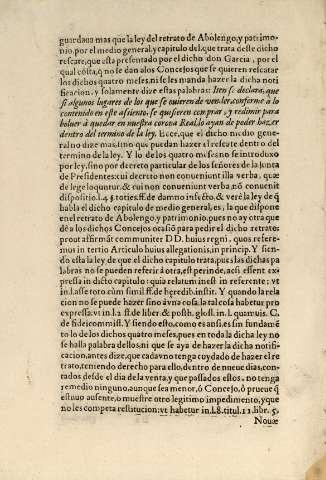 guardaua mas que la ley del retrato de Abolengo, y patrimo-
nio, por el medio general, y capitulo del, que trata deste dicho
rescate, que esta presentado por el dicho don Garcia, por el
qual cõsta, q̃ no se dan alos Concejos que se quieren rescatar
los dichos quatro meses, ni se les manda hazer la dicha noti
ficacion, y solamente dize estas palabras: Iten se declara, que
si algunos lugares de los que se quieren de vender, conforme a lo
contenido en este assiento, se quisieren comprar, y redimir para
boluer a quedar en nuestra corona Real, lo ayan de poder hazer
dentro del termino de la ley. Ecce, que el dicho medio gene
ral no dize mas, sino que puedan hazer el rescate dentro del
termino de la ley. Y lo de los quatro meses no se introduxo
por ley, sino por decreto particular de los señores de la junta
de Presidentes: cui decreto non conueniunt illa verba, quæ
de lege loquũtur, & cui non conueniunt verba, nõ conuenit
dispositio, l. 4 § toties. ff. de damno infecto, & vere la ley de q̃
habla el dicho capitulo de medio general, es, la que dispone
en el retrato de Abolengo, y patrimonio, pues no ay otra que
dè a los dichos Concejos ocasió para pedir el dicho retrato:
prout affirmãt communiter DD. huius regni, quos referemus
in tertio Articulo huius allegationis, in princip. Y siendo
esta la ley de que el dicho capitulo trata, pues las dichas pa
labras no se pueden referir à otra, est perinde, acsi essent ex
pressa in dicto capitulo: quia relatum inest in referente: vt
in l. asse toto. cum simil. ff. de hæredib. instit. Y quando la rela
cion no se puede hazer sino à vna cosa, la tal cosa habetur pro
expressa: vt in l. 2 ff. de liber & posth. glos. in l. quamuis. C.
de fideicommiss. Y siendo esto, como es ansi, es sin fundamẽ
to lo de los dichos quatro meses, pues en toda la dicha ley no
se halla palabra dellos, ni que se aya de hazer la dicha notifi-
cacion, antes dize, que cada vno tenga cuydado de hazer el re
trato, teniendo derecho para ello, dentro de nueue dias, con-
tados desde el dia de la venta, y que passados ellos, no tenga
remedio ninguno, aunque sea menor, ò Concejo, ò prueue q̃
estuuo ausente, ò muestre otro legitimo impedimento, y que
no les competa restitucion: vt habetur in l. 8. titul. 11. libr. 5.
Nouæ